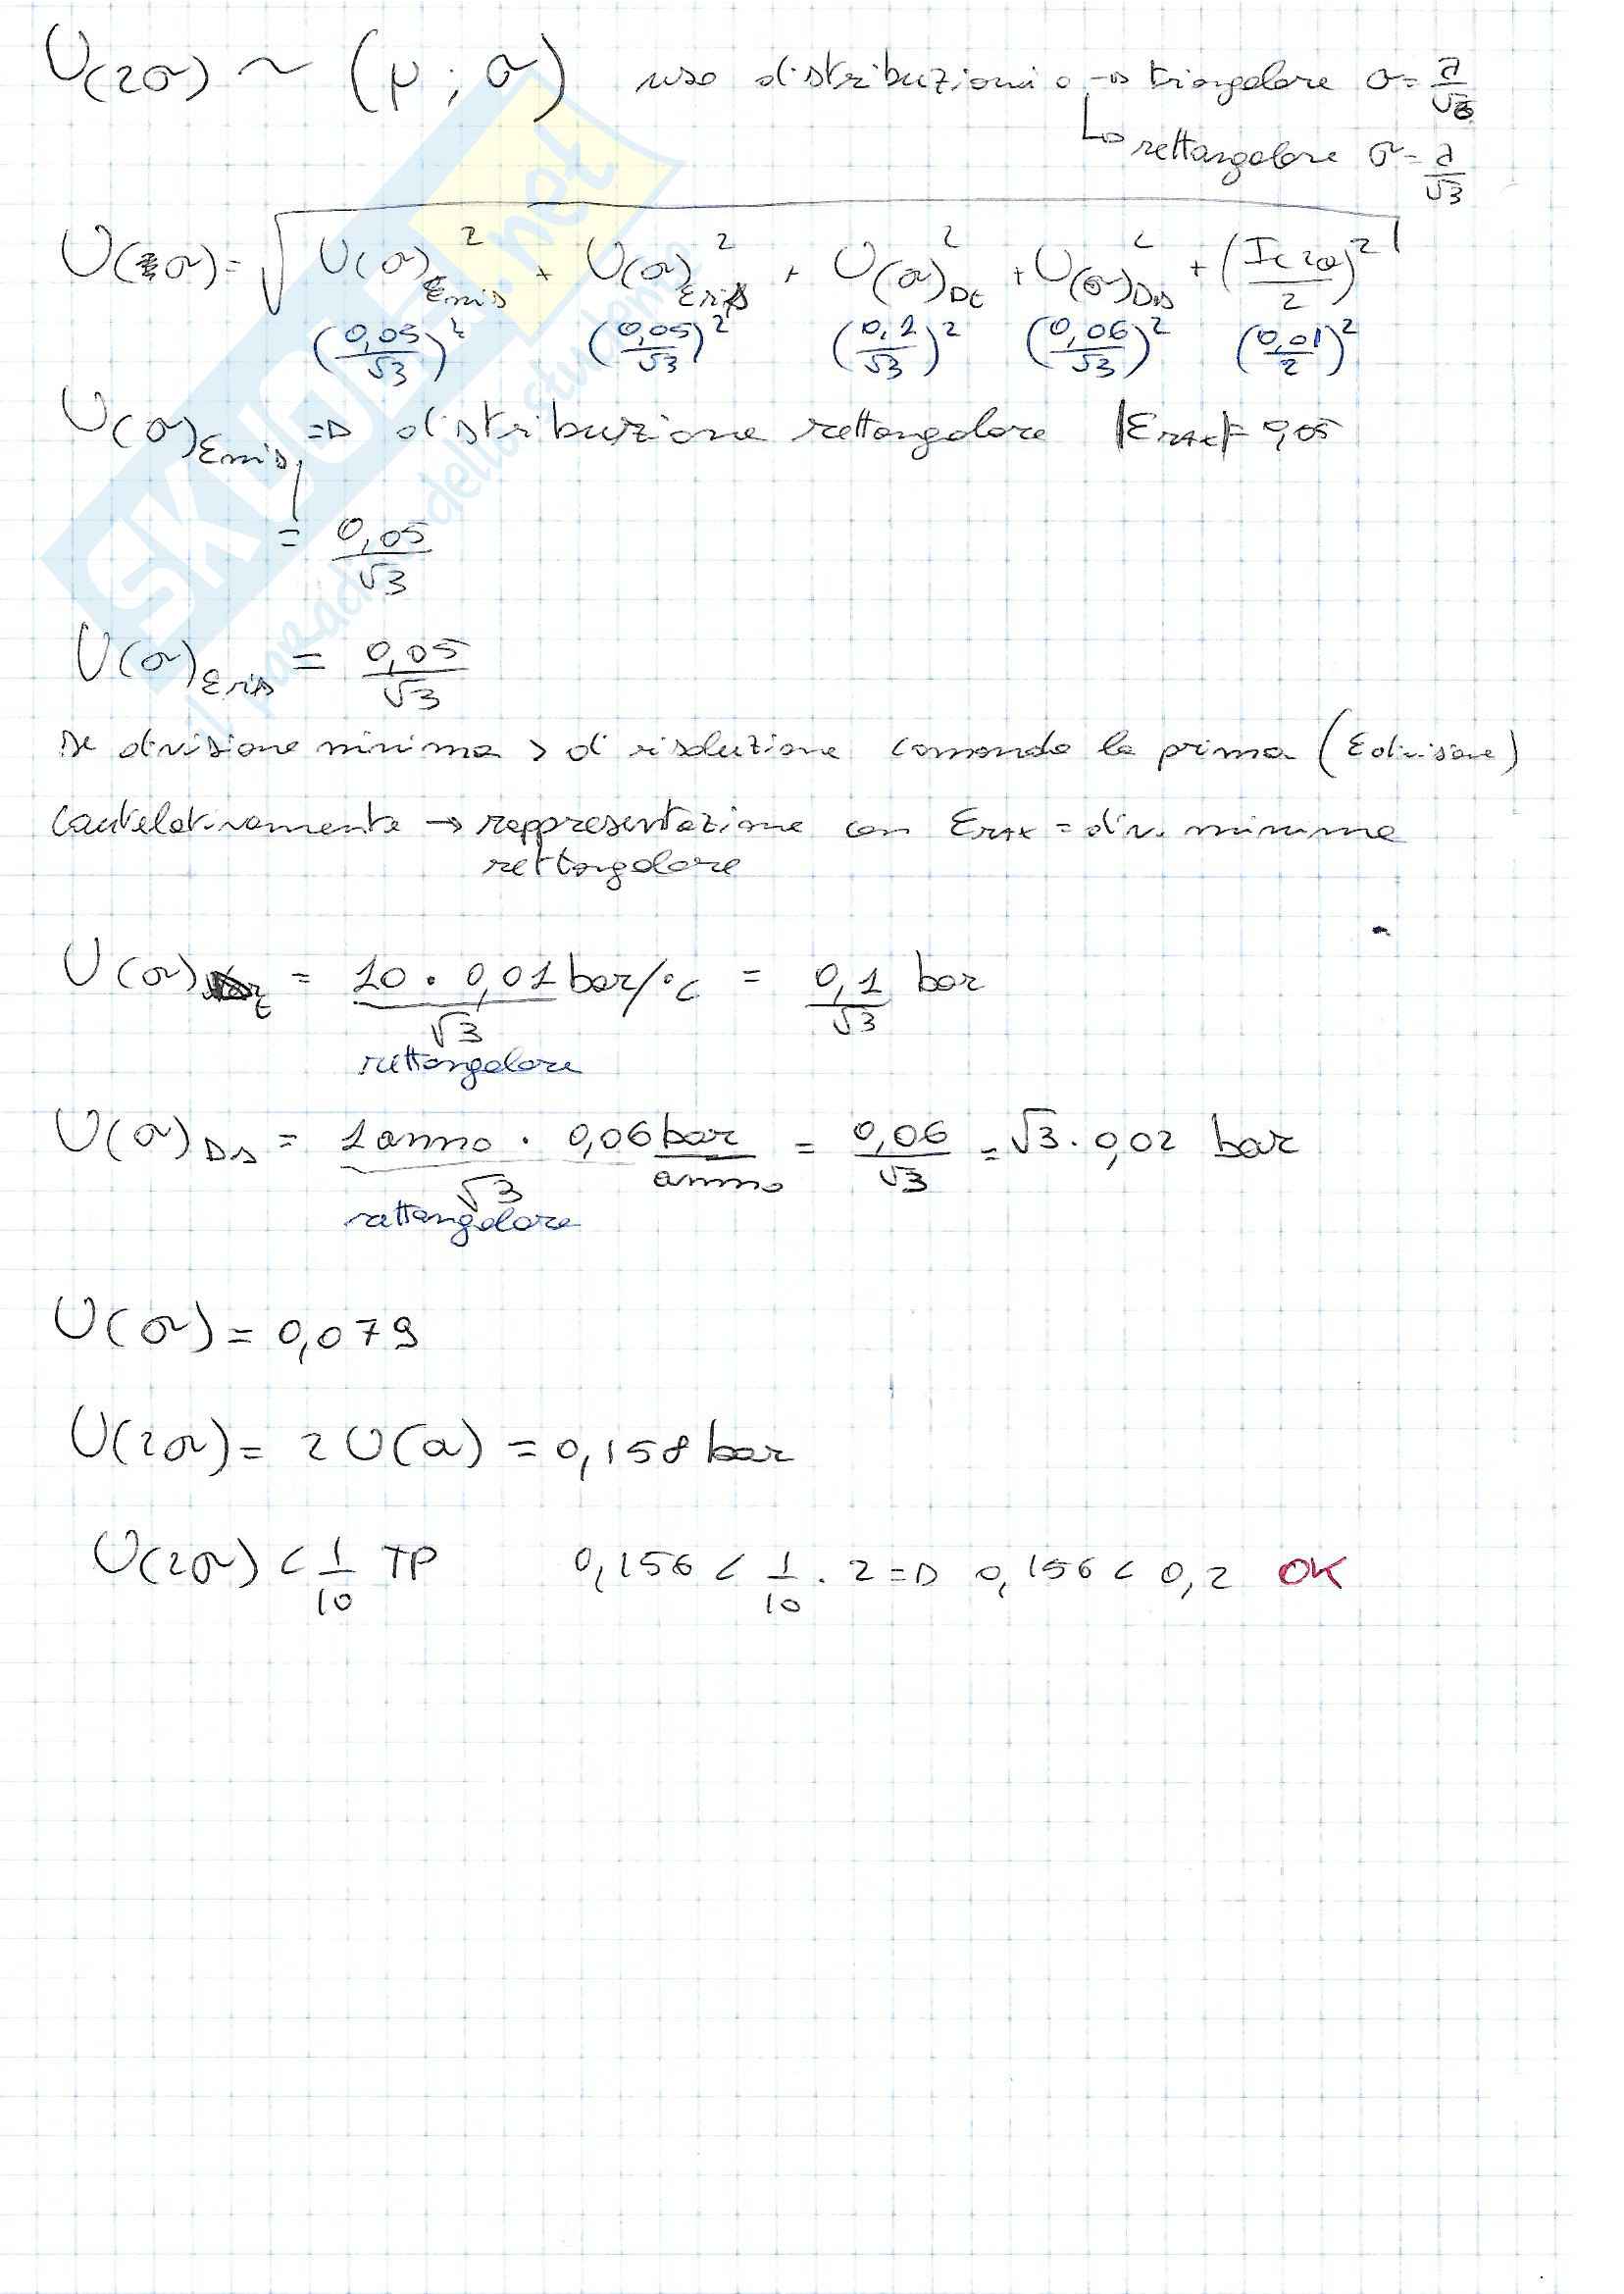 U(2σ) ~ (μ ; σ) uso distribuzioni → triangolare σ = a/√6
↳ rettangolare σ = a/√3
U(σ) = √( U(σ)Emis² + U(σ)Eris² + U(σ)Dt² + U(σ)Ds² + (I(2σ)/2)² )
(0,05/√3)² (0,05/√3)² (0,1/√3)² (0,06/√3)² (0,01/2)²
U(σ)Emis ⇒ distribuzione rettangolare |EMAX| = 0,05
= 0,05/√3
U(σ)Eris = 0,05/√3
se divisione minima > di risoluzione comanda la prima (Edivisione)
Cautelativamente → rappresentazione con EMAX = div. minima
rettangolare
U(σ) t = 10 · 0,01 bar/°C /√3 = 0,1/√3 bar
rettangolare
U(σ)Ds = 1 anno · 0,06 bar/anno /√3 = 0,06/√3 = √3 · 0,02 bar
rettangolare
U(σ) = 0,079
U(2σ) = 2 U(σ) = 0,158 bar
U(2σ) < 1/10 TP 0,156 < 1/10 · 2 ⇒ 0,156 < 0,2 OK
SKUOLA.net
il paradiso dello studente